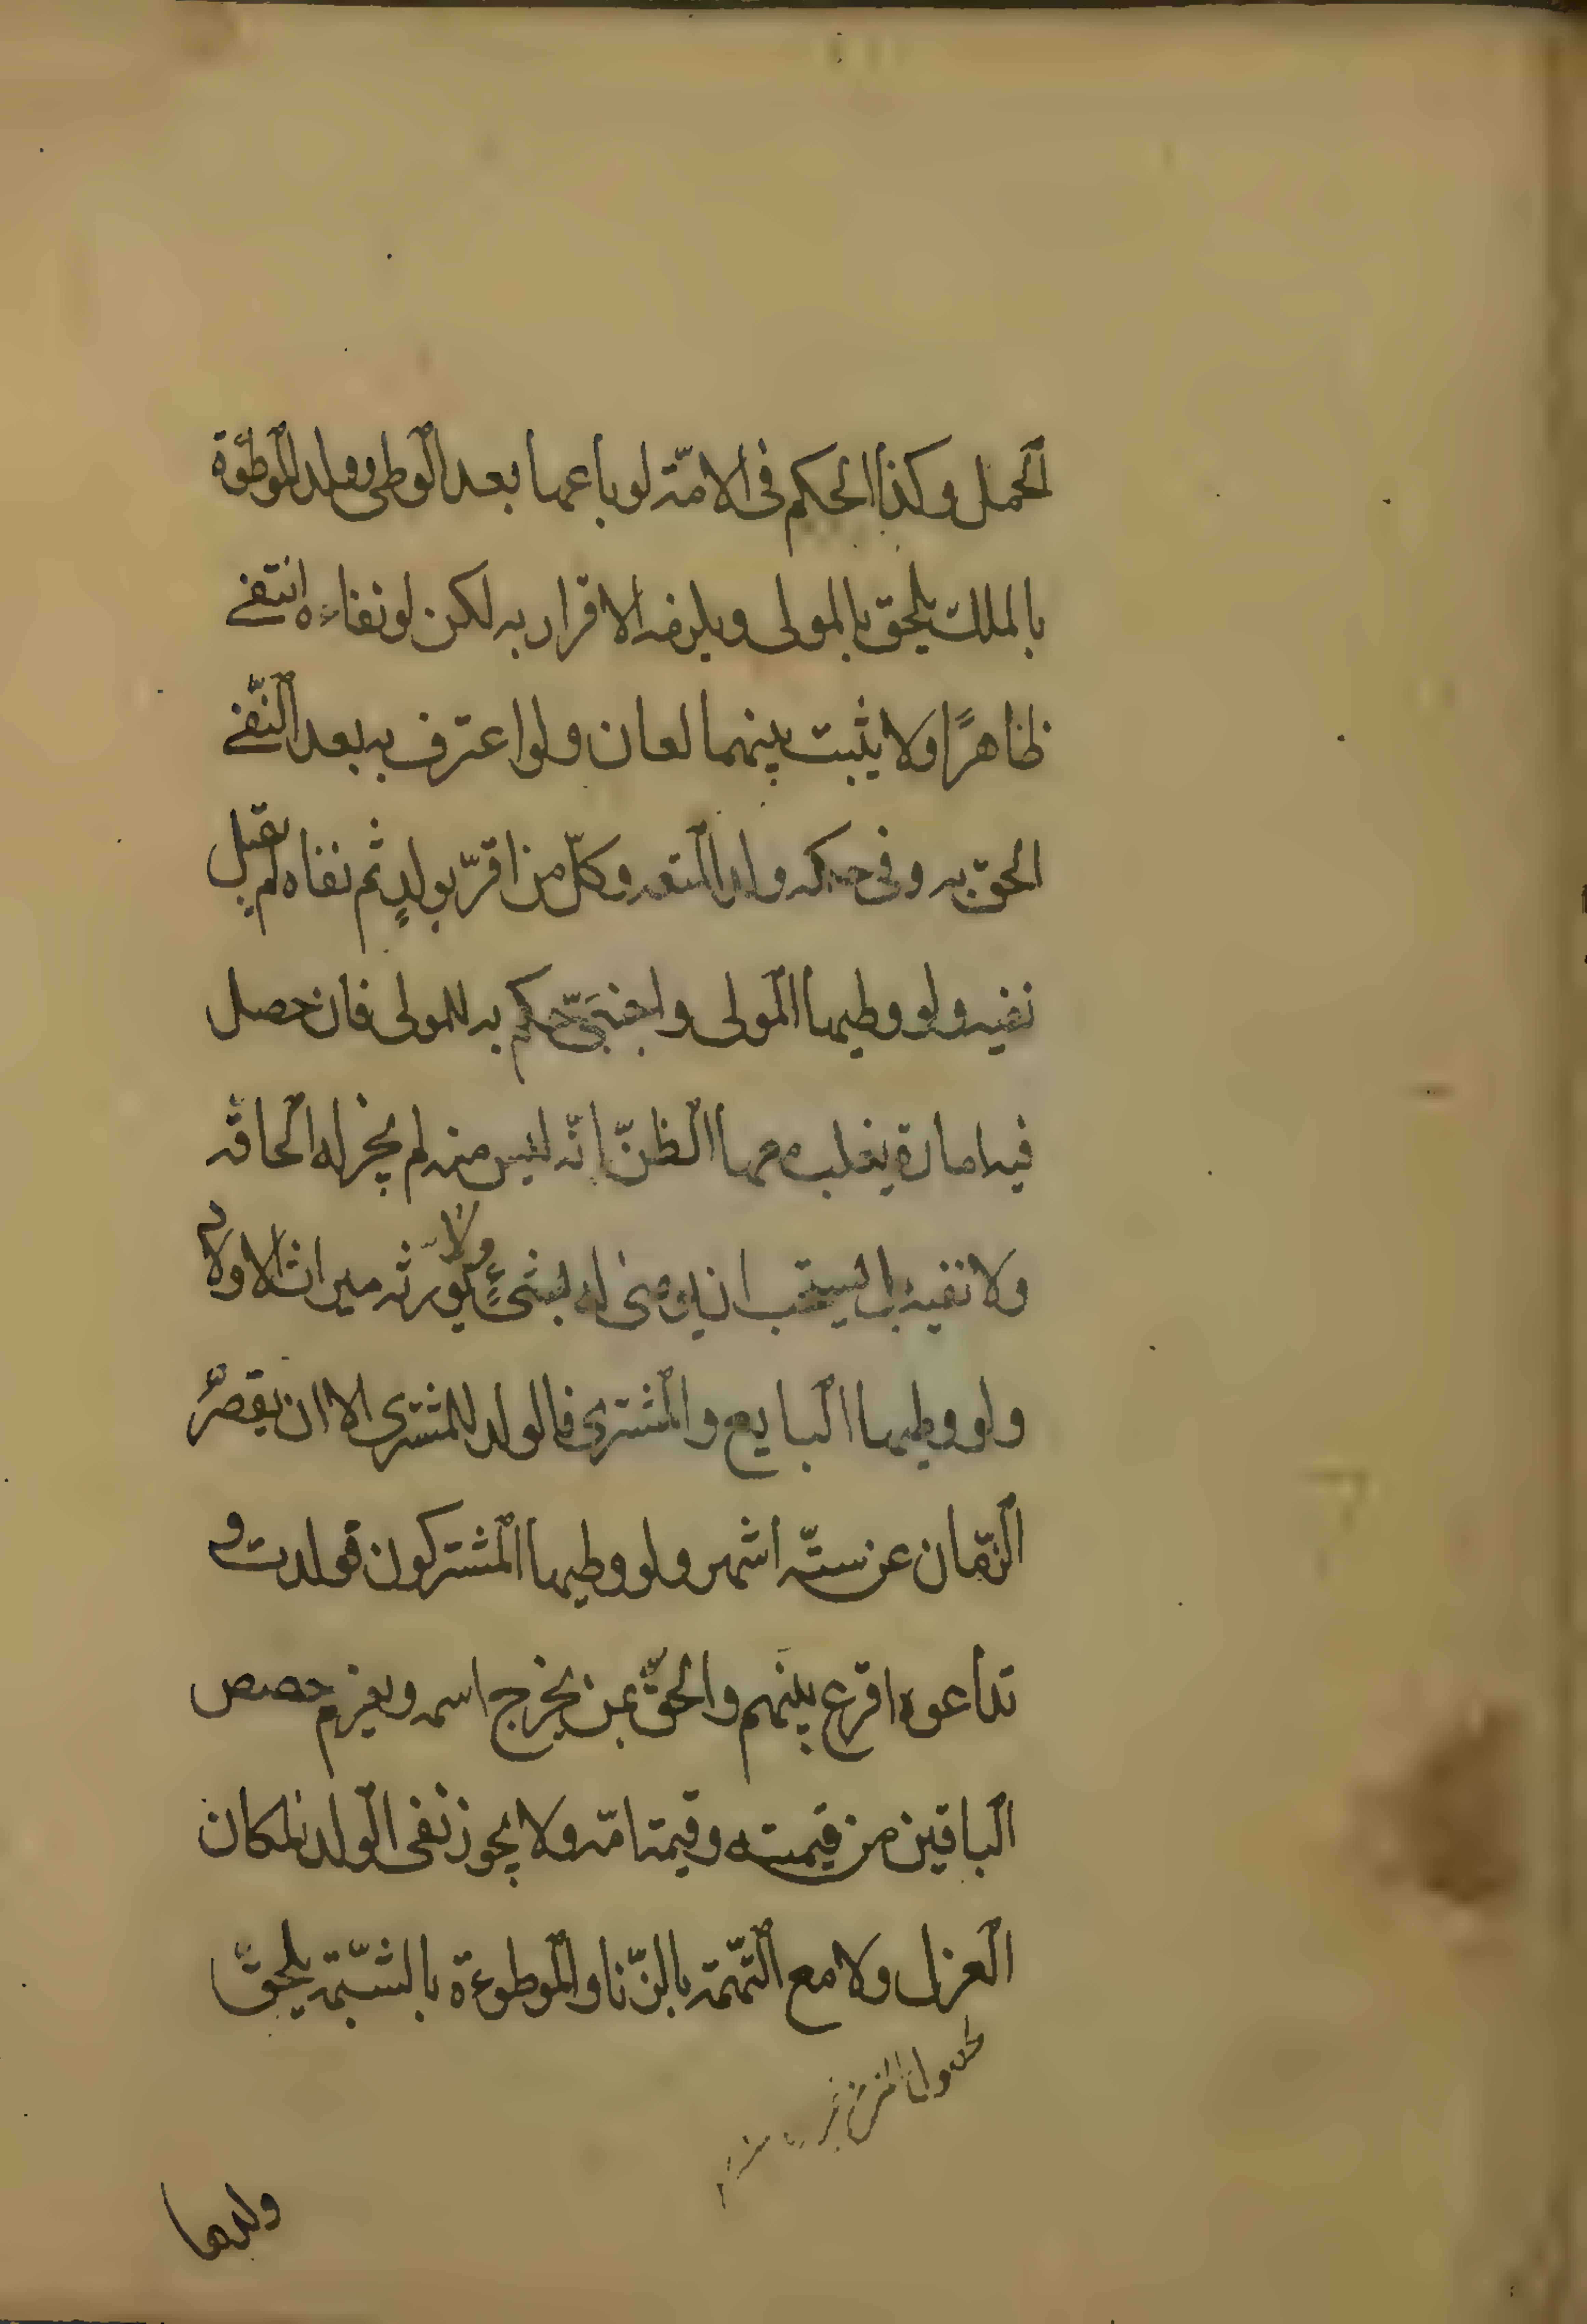 الحمل وكذا الحكم فى الامة لو باعها بعد الوطى وولد الموطؤة
بالملك يلحق بالمولى ويلزمه الاقرار به لكن لو نفاءه انتفى
ظاهرًا ولا يثبت بينهما لعان ولو اعترف به بعد النّفى
الحق به وفى حكمه ولد المتعه وكلّ من اقرّ بولدٍ ثم نفاه لم يقبل
نفيه ولو وطيها المولى واجنبىّ حكم به للمولى فان حصل
فيه امارة يغلب معها الظنّ انّه ليس منه لم يجز له الحاقه
ولا نفيه بل يستحب ان يوصى له بشئٍ ولا يورثه ميراث الاولاد
ولو وطيها البايع والمشترى فالولد للمشترى الا ان يقصر
الزّمان عن ستّه اشهر ولو وطيها المشتركون فولدت و
تداعوه اقرع بينهم والحق بمن يخرج اسمه ويغرم حصص
الباقين من قيمته وقيمة امّه ولا يجوز نفى الولد لمكان
العزل ولا مع التّهمة بالزّنا والموطوءة بالشّبهة يلحق
ولدها